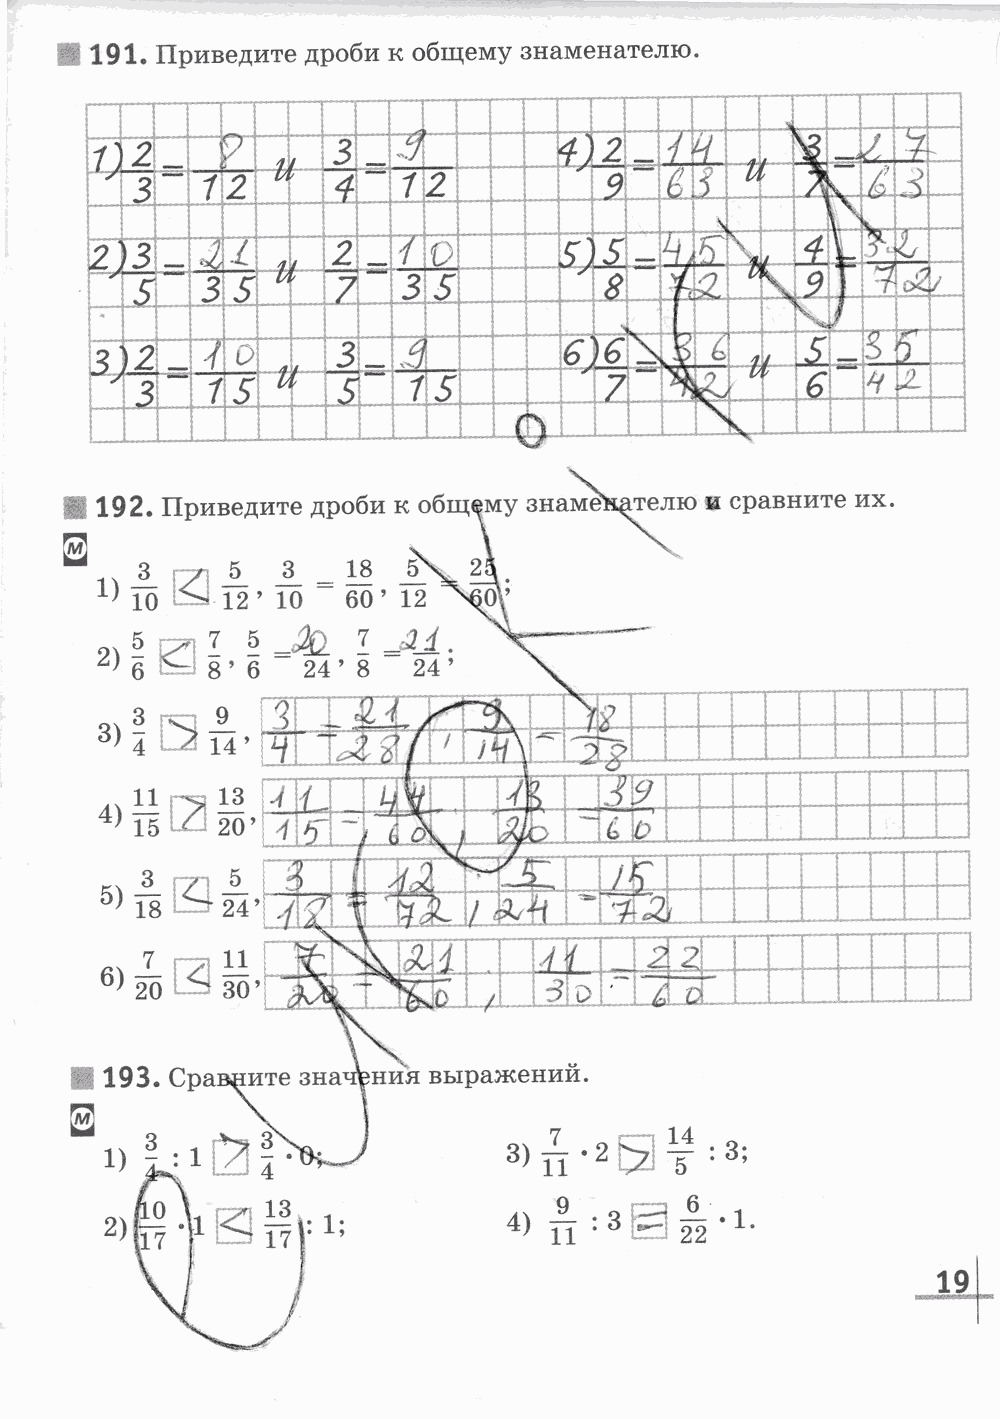 191. Приведите дроби к общему знаменателю.
1) 2/3 = 8/12 и 3/4 = 9/12
4) 2/9 = 14/63 и 3/7 = 27/63
2) 3/5 = 21/35 и 2/7 = 10/35
5) 5/8 = 45/72 и 4/9 = 32/72
3) 2/3 = 10/15 и 3/5 = 9/15
6) 6/7 = 36/42 и 5/6 = 35/42
192. Приведите дроби к общему знаменателю и сравните их.
М
1) 3/10 < 5/12, 3/10 = 18/60, 5/12 = 25/60;
2) 5/6 < 7/8, 5/6 = 20/24, 7/8 = 21/24;
3) 3/4 > 9/14, 3/4 = 21/28, 9/14 = 18/28
4) 11/15 > 13/20, 11/15 = 44/60, 13/20 = 39/60
5) 3/18 < 5/24, 3/18 = 12/72, 5/24 = 15/72
6) 7/20 < 11/30, 7/20 = 21/60, 11/30 = 22/60
193. Сравните значения выражений.
М
1) 3/4 : 1 > 3/4 · 0;
3) 7/11 · 2 > 14/5 : 3;
2) 10/17 · 1 < 13/17 : 1;
4) 9/11 : 3 = 6/22 · 1.
19